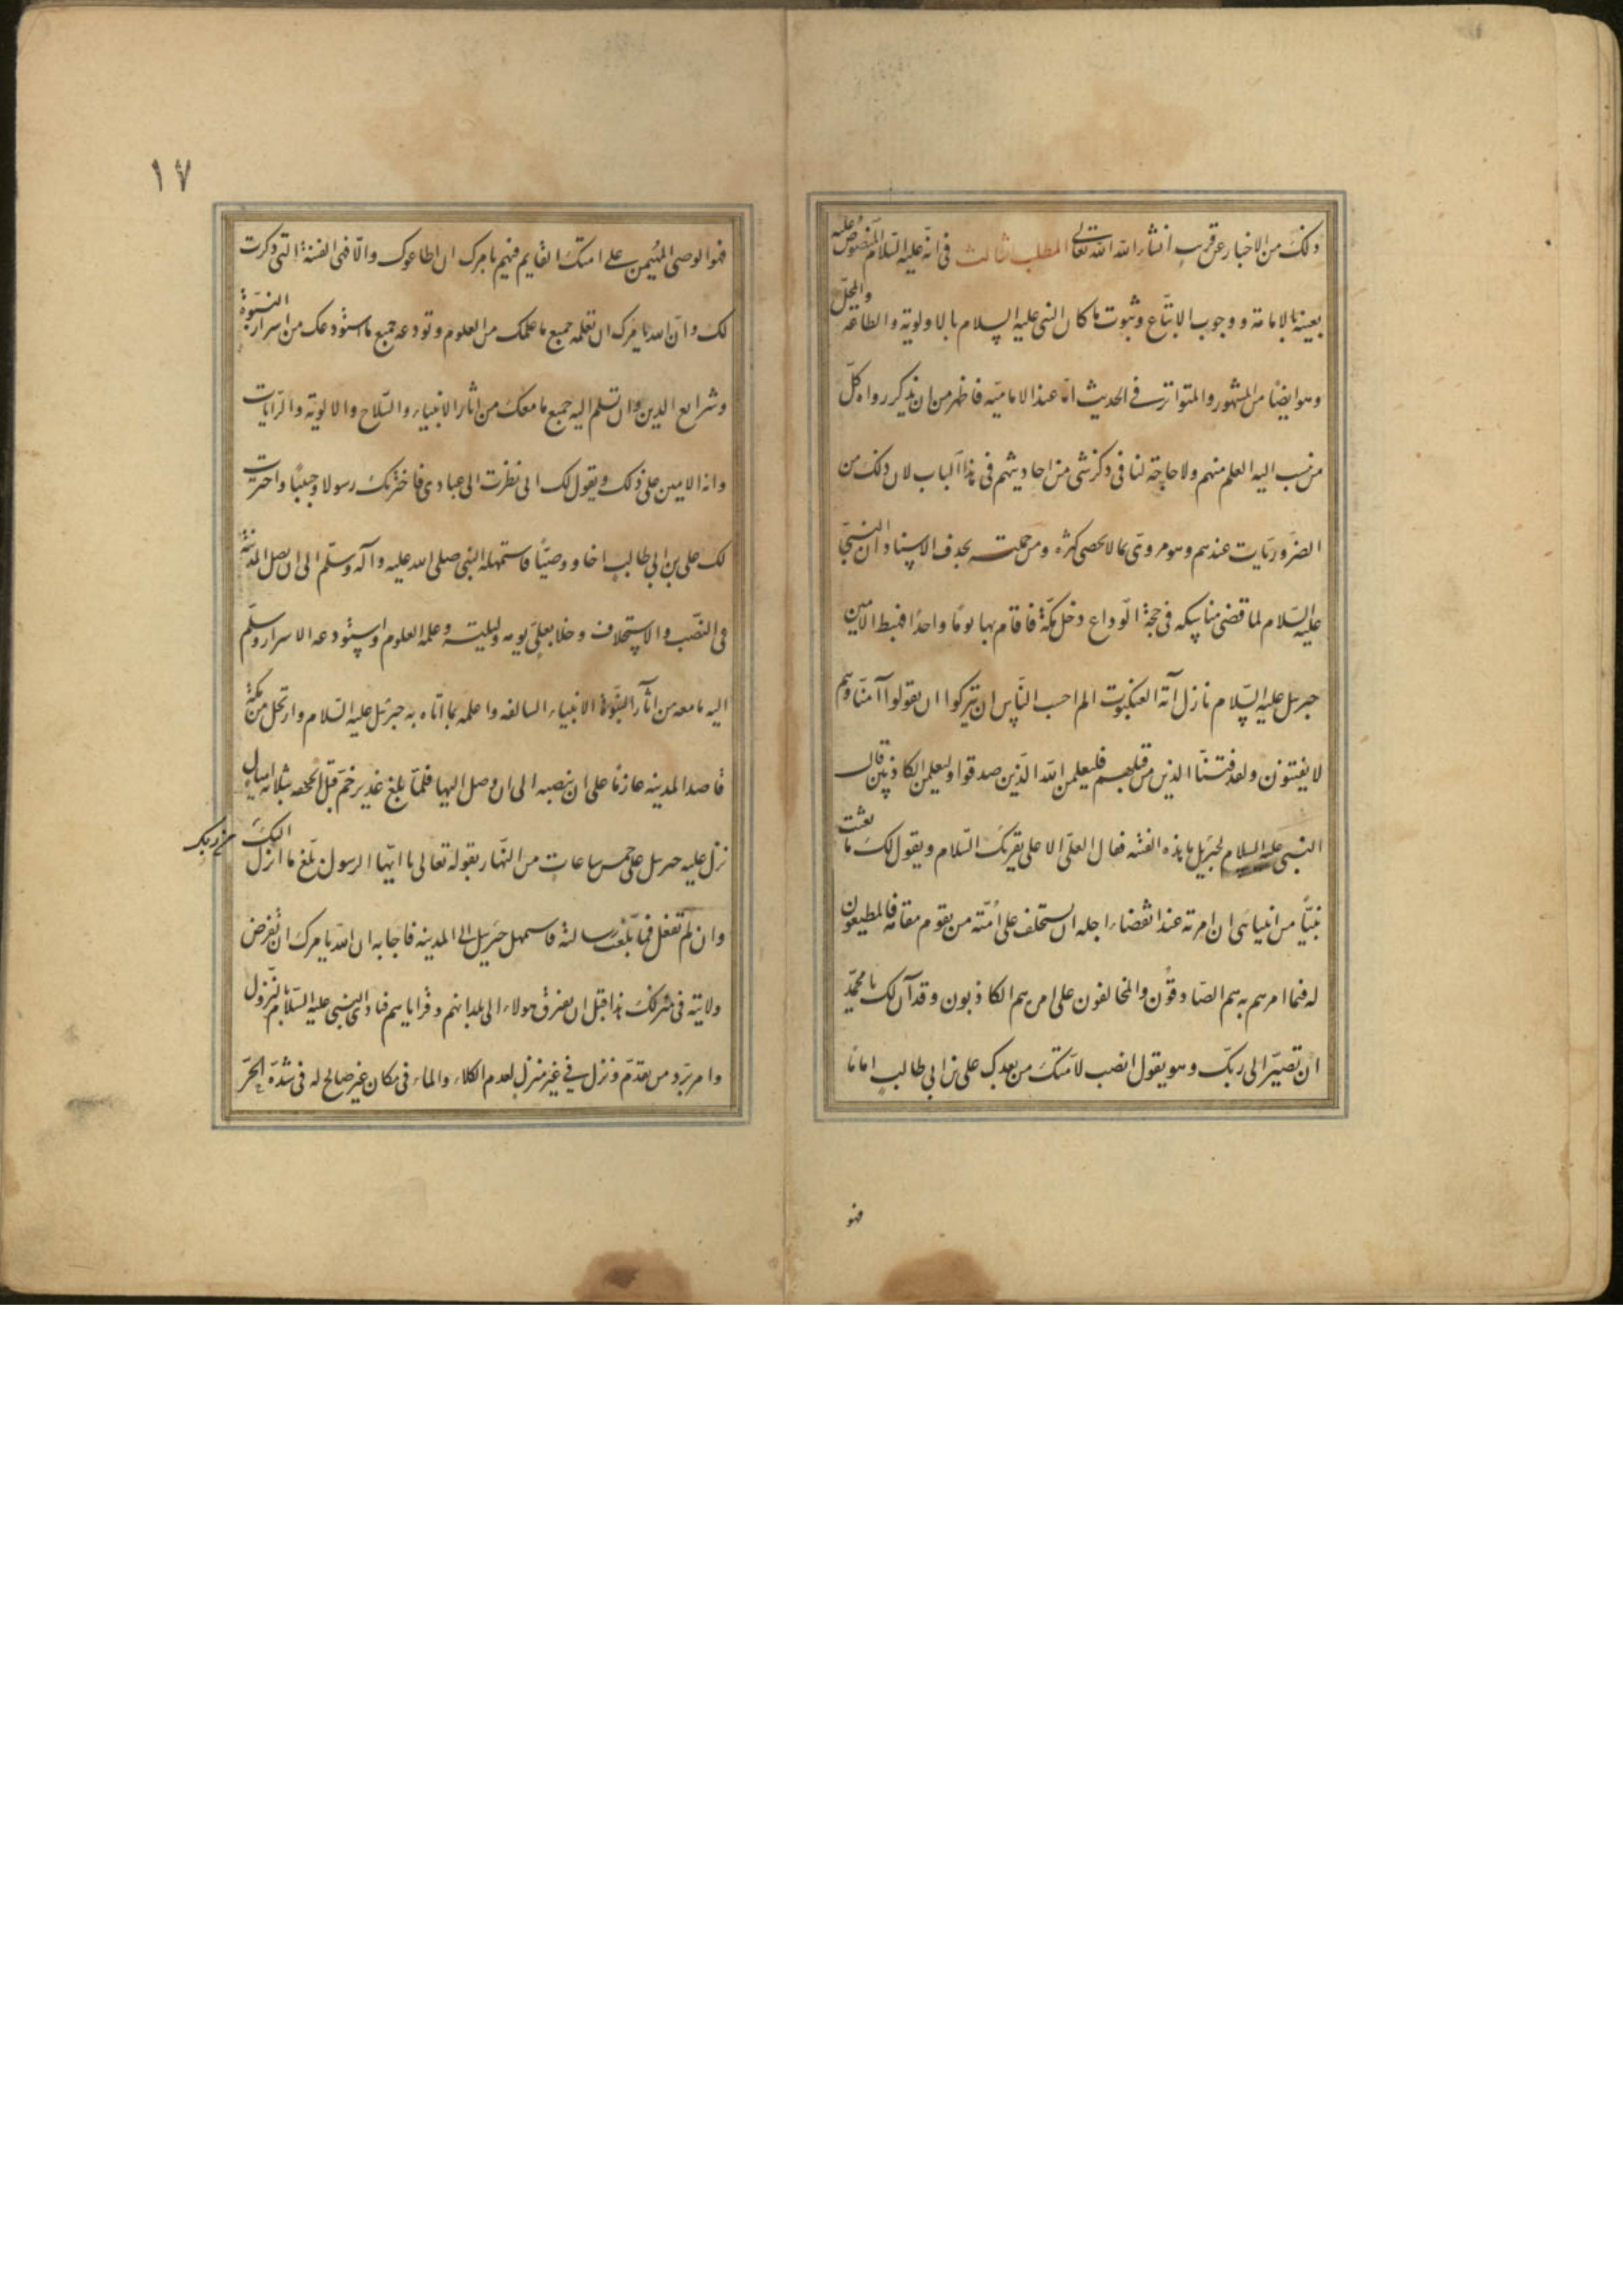 ذلک من الاخبار عن قریب انشاء الله تعالی المطلب ثالث فی انّه علیه السّلام المنصوص علیه
بعینه بالامامة و وجوب الاتباع و ثبوت ما کان للنبی علیه السلام بالاولویّه و الطاعه و المحلّ
و هو ایضًا من المشهور و المتواتر فی الحدیث امّا عند الامامیّه فاظهر من ان یذکر رواه کلّ
من نسب الیه العلم منهم ولا حاجة لنا فی ذکر شی من احادیثهم فی هذا الباب لان ذلک من
الضروریّات عندهم و هو مروی بما لا یحصی کثره و من جملته بحذف الاسناد ان النبی
علیه السّلام لما قضی مناسکه فی حجّة الوداع دخل مکّة فاقام بها یومًا واحدًا فهبط الامین
جبریل علیه السّلام نازل آیة العنکبوت الم احسب النّاس ان یترکوا ان یقولوا آمنّا وهم
لا یفتنون و لقد فتنّا الذین من قبلهم فلیعلمن اللّه الّذین صدقوا و لیعلمن الکاذبین قال
النبی علیه السلام لجبریل ما هذه الفتنه فقال العلیّ الاعلی یقرئک السّلام و یقول لک ما بعثت
نبیًّا من انبیائی ان امرته عند انقضاء اجله ان یستخلف علی امّته من یقوم مقامه فالمطیعون
له فیما امرهم به هم الصّادقون و المخالفون علی امره هم الکاذبون و قد آن لک یا محمّد
ان تصیر الی ربّک و هو یقول انصب لامّتک من بعدک علی بن ابی طالب امامًا
فهو
١٧
فهو الوصی المهیمن علی امتک القایم فیهم بامرک ان اطاعوک و الّا فهی الفتنة التی ذکرت
لک و ان الله یامرک ان تعلمه جمیع ما علمک من العلوم و تودعه جمیع ما استودعک من اسرار النبوّة
و شرایع الدین و ان تسلم الیه جمیع ما معک من اثار الانبیاء و السّلاح و الالویّه و الرّایات
و انه الامین علی ذلک و یقول لک انی نظرت الی عبادی فاخترتک رسولا و حبیبًا و اخترت
لک علی بن ابی طالب اخا و وصیًّا فاستمهله النبی صلی الله علیه و آله و سلّم الی ان یصل المدینة
فی النصّب و الاستخلاف و خلا بعلی یومه ولیلته و علمه العلوم و استودعه الاسرار و سلّم
الیه ما معه من آثار النبوّة الانبیاء السالفه و اعلمه بما اتاه به جبرئیل علیه السّلام و ارتحل من مکّة
قاصدا المدینه عازمًا علی ان ینصبه الی ان وصل الیها فلمّا بلغ غدیر خمّ قبل الجحفه بثلاثه امیال
نزل علیه جبریل علی خمس ساعات من النّهار بقوله تعالی یا ایّها الرسول بلّغ ما انزل الیک من ربک
و ان لم تفعل فما بلّغت رسالته فاستمهل جبریل الی المدینه فاجابه ان اللّه یامرک ان تفرض
ولایته فی منزلک هذا قبل ان یتفرق هولاء الی بلدانهم و قرایاهم فنادی النبی علیه السّلام بالنّزول
و امر بردّ من تقدّم و نزل فی غیر منزل لعدم الکلاء و الماء فی مکان غیر صالح له فی شدّة الحرّ